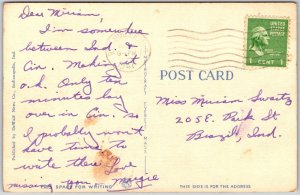 Dear Miriam,
I'm somewhere
between Ind. &
Cin. Making it
o.k. Only ten
minutes lay
over in Cin. so
I probably won't
have time to
write there. Love
missing you, Margie
FOR SPACE FOR WRITING
POST CARD
UNITED STATES
POSTAGE
1 CENT 1
Miss Miriam Swartz
205 E. Park St.
Brazil, Ind.
THIS SIDE IS FOR THE ADDRESS